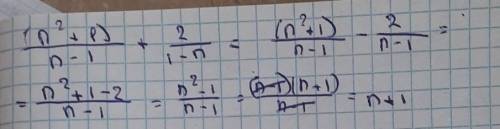 (n² + 1)/(n - 1) + 2/(1 - n) = (n² + 1)/(n - 1) - 2/(n - 1) =
= (n² + 1 - 2)/(n - 1) = (n² - 1)/(n - 1) = (n - 1)(n + 1)/(n - 1) = n + 1